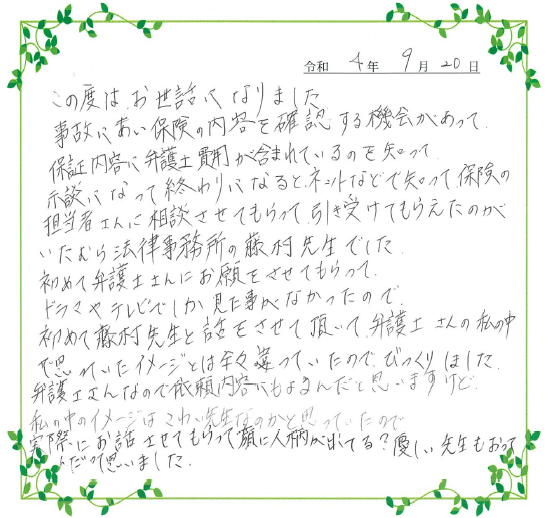 令和 4年 9月 20日
この度は、お世話になりました
事故にあい保険の内容を確認する機会があって、
保証内容に弁護士費用が含まれているのを知って
示談になって終わりになると、ネットなどで知って、保険の
担当者さんに相談させてもらって、引き受けてもらえたのが
いたむら法律事務所の藤村先生でした。
初めて弁護士さんにお願をさせてもらって、
ドラマやテレビでしか見た事がなかったので、
初めて藤村先生と話をさせて頂いて、弁護士さんの私の中
で思っていたイメージとは全々違っていたので、びっくりしました。
弁護士さんなので依頼内容にもよるんだと思いますけど、
私の中のイメージはこわい先生なのかと思っていたので
実際にお話させてもらって顔に人柄が出てる?優しい先生もおって
んだって思いました。